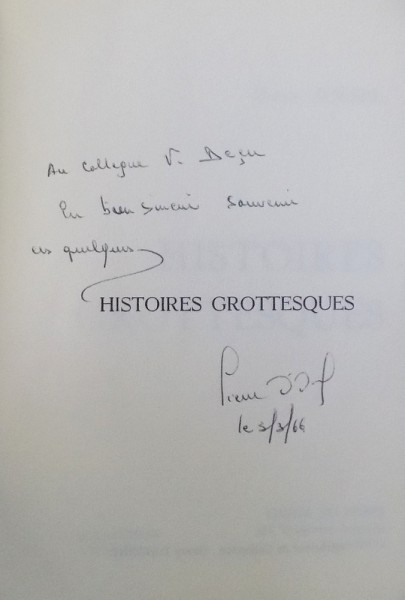 Au Collègue V. Decu
En bien sincère souvenir
ces quelques
HISTOIRES GROTTESQUES
Pierre
le 3/3/66